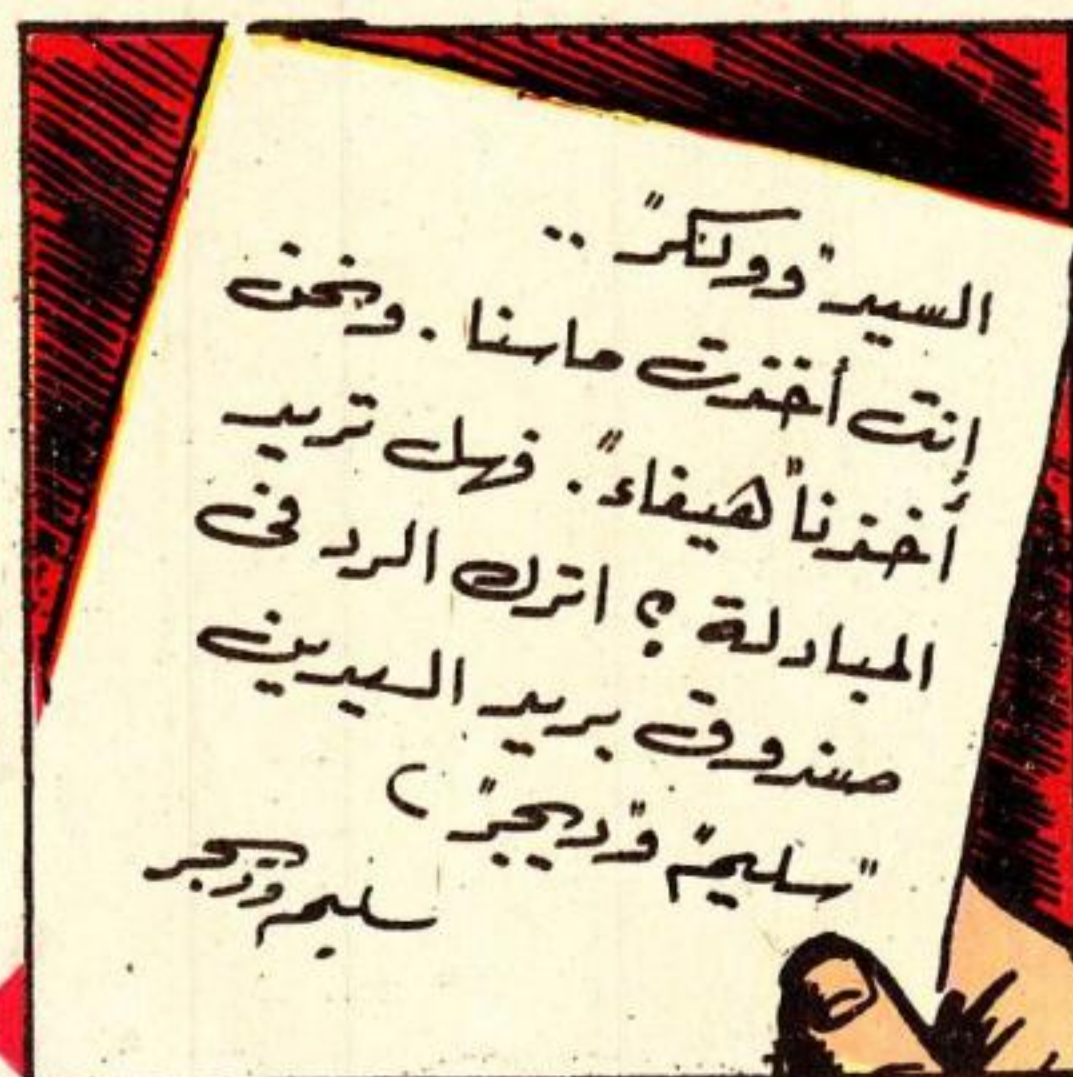 السيد "وولنكر" ..
إنت أخذت ماسنا . ونحن
أخذنا "هيفاء" . فهل تريد
المبادلة ؟ اترك الرد فى
صندوق بريد السيدين
"سليم" و "ديجر" )
سليم وديجر